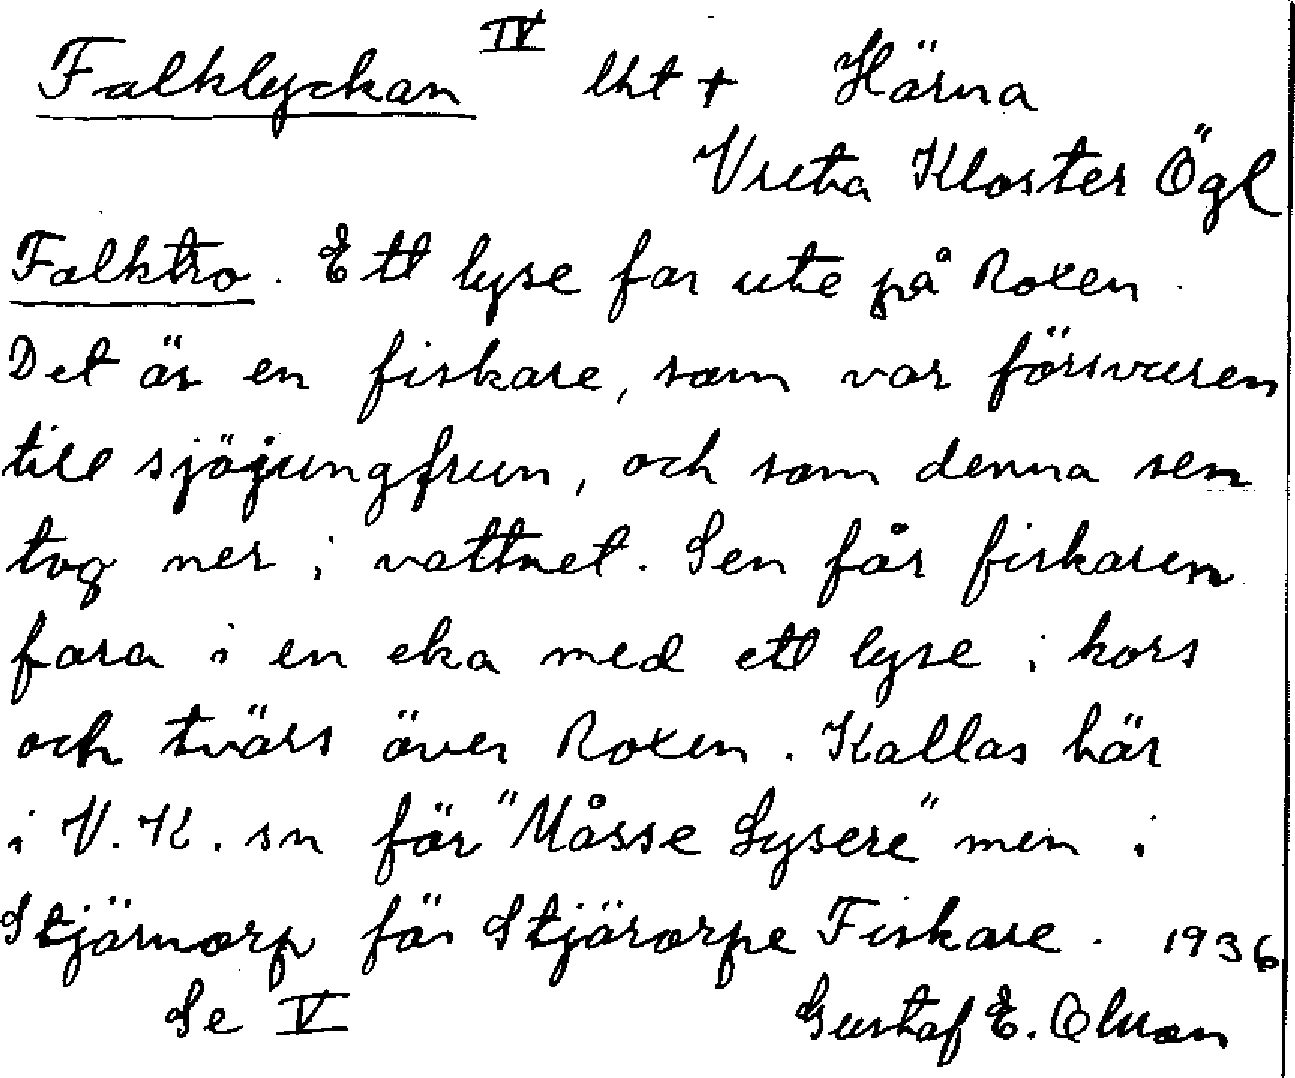 Falklyckan IV lht + Härna
Vreta Kloster Ögl
Falktro. Ett lyse far ute på Roxen.
Det är en fiskare, som var försvuren
till sjöjungfrun, och som denna sen
tog ner i vattnet. Sen får fiskaren
fara i en eka med ett lyse i kors
och tvärs över Roxen. Kallas här
i V. K. sn för "Måsse Lysere" men i
Stjärnorp för Stjärorpe Fiskare. 1936
Se V Gustaf E. Olson